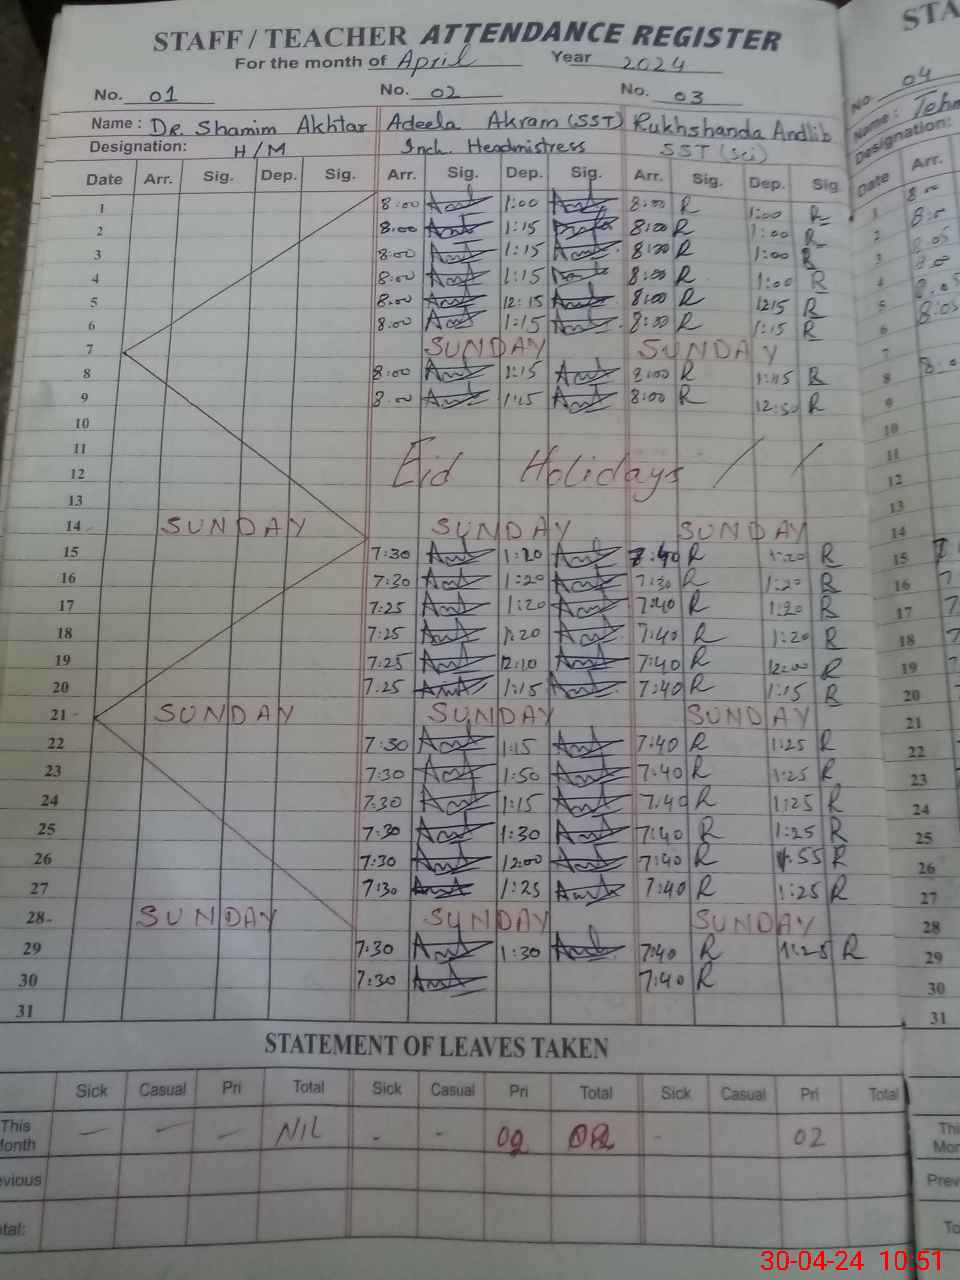 STAFF / TEACHER ATTENDANCE REGISTER
For the month of April Year 2024
No. 01 No. 02 No. 03
Name : Dr. Shamim Akhtar Adeela Akram (SST) Rukhshanda Andlib
Designation: H/M Inch. Headmistress SST (Sci)
Date Arr. Sig. Dep. Sig. Arr. Sig. Dep. Sig. Arr. Sig. Dep. Sig.
1 8:00 1:00 8:00 R 1:00 R
2 8:00 1:15 8:00 R 1:00 R
3 8:00 1:15 8:00 R 1:00 R
4 8:00 1:15 8:00 R 1:00 R
5 8:00 12:15 8:00 R 1215 R
6 8:00 1:15 8:00 R 1:15 R
7 SUNDAY SUNDAY
8 8:00 1:15 8:00 R 1:15 R
9 8:00 1:15 8:00 R 12:50 R
10
11 Eid Holidays / /
12
13
14 SUNDAY SUNDAY SUNDAY
15 7:30 1:20 7:40 R 1:20 R
16 7:30 1:20 7:30 R 1:20 R
17 7:25 1:20 7:40 R 1:20 R
18 7:25 1:20 7:40 R 1:20 R
19 7:25 12:10 7:40 R 12:00 R
20 7:25 1:15 7:40 R 1:15 R
21 - SUNDAY SUNDAY SUNDAY
22 7:30 1:15 7:40 R 1:25 R
23 7:30 1:50 7:40 R 1:25 R
24 7:30 1:15 7:40 R 1:25 R
25 7:30 1:30 7:40 R 1:25 R
26 7:30 12:00 7:40 R R
27 7:30 1:25 7:40 R 1:25 R
28 - SUNDAY SUNDAY SUNDAY
29 7:30 1:30 7:40 R 1:25 R
30 7:30 7:40 R
31
STATEMENT OF LEAVES TAKEN
Sick Casual Pri Total Sick Casual Pri Total Sick Casual Pri Total
This Month — — — NIL - - - 02
evious
otal:
STA
No. 04
Name : Tehm
Designation:
Date Arr.
1 8:00
2 8:0
3 8:05
4 8:00
5 8:05
6 8:05
7
8 8:0
9
10
11
12
13
14
15 7
16 7
17 7
18
19 7
20
21
22
23
24
25
26
27
28
29
30
31
Thi
Mor
Prev
To
30-04-24 10:51